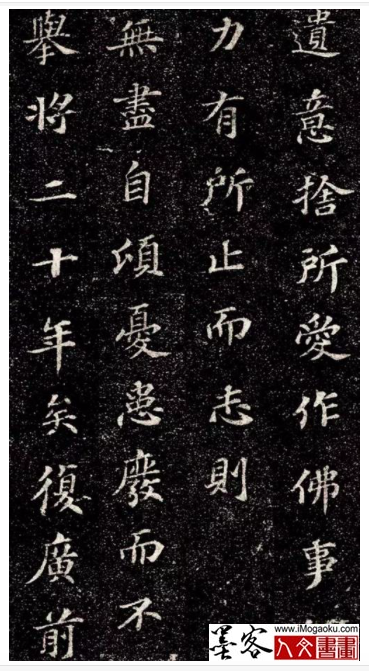 遺意捨所愛作佛事
力有所止而志則
無盡自頃憂患廢而不
舉將二十年矣復廣前
墨客 www.iMogaoku.com
人文書畫